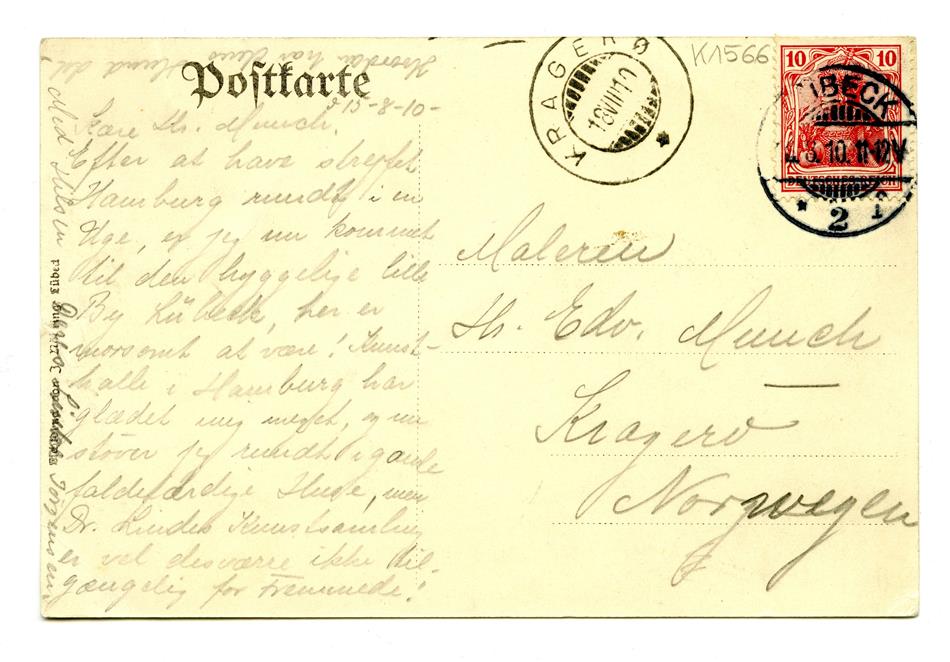 Postkarte
d 15-8-10-
Kære Hr. Munch.
Efter at have strejfet
Hamburg rundt i en
Uge, er jeg nu kommet
til den hyggelige lille
By Lübeck, her er
morsomt at være! Kunst-
halle i Hamburg har
glædet mig meget, og nu
støver jeg rundt i gamle
faldefærdige Huse, men
Dr. Lindes Kunstsamling
er vel desværre ikke til-
gængelig for Fremmede!
Hvordan har deres Hund det
Med Hilsen
Jørgensen.
Lübeck
KRAGERØ
18 VIII 10
K1566
10 10
DEUTSCHES REICH
ÜBECK
10. 11-12 V
* 2
Maleren
Hr. Edv. Munch
Kragerø
Norwegen